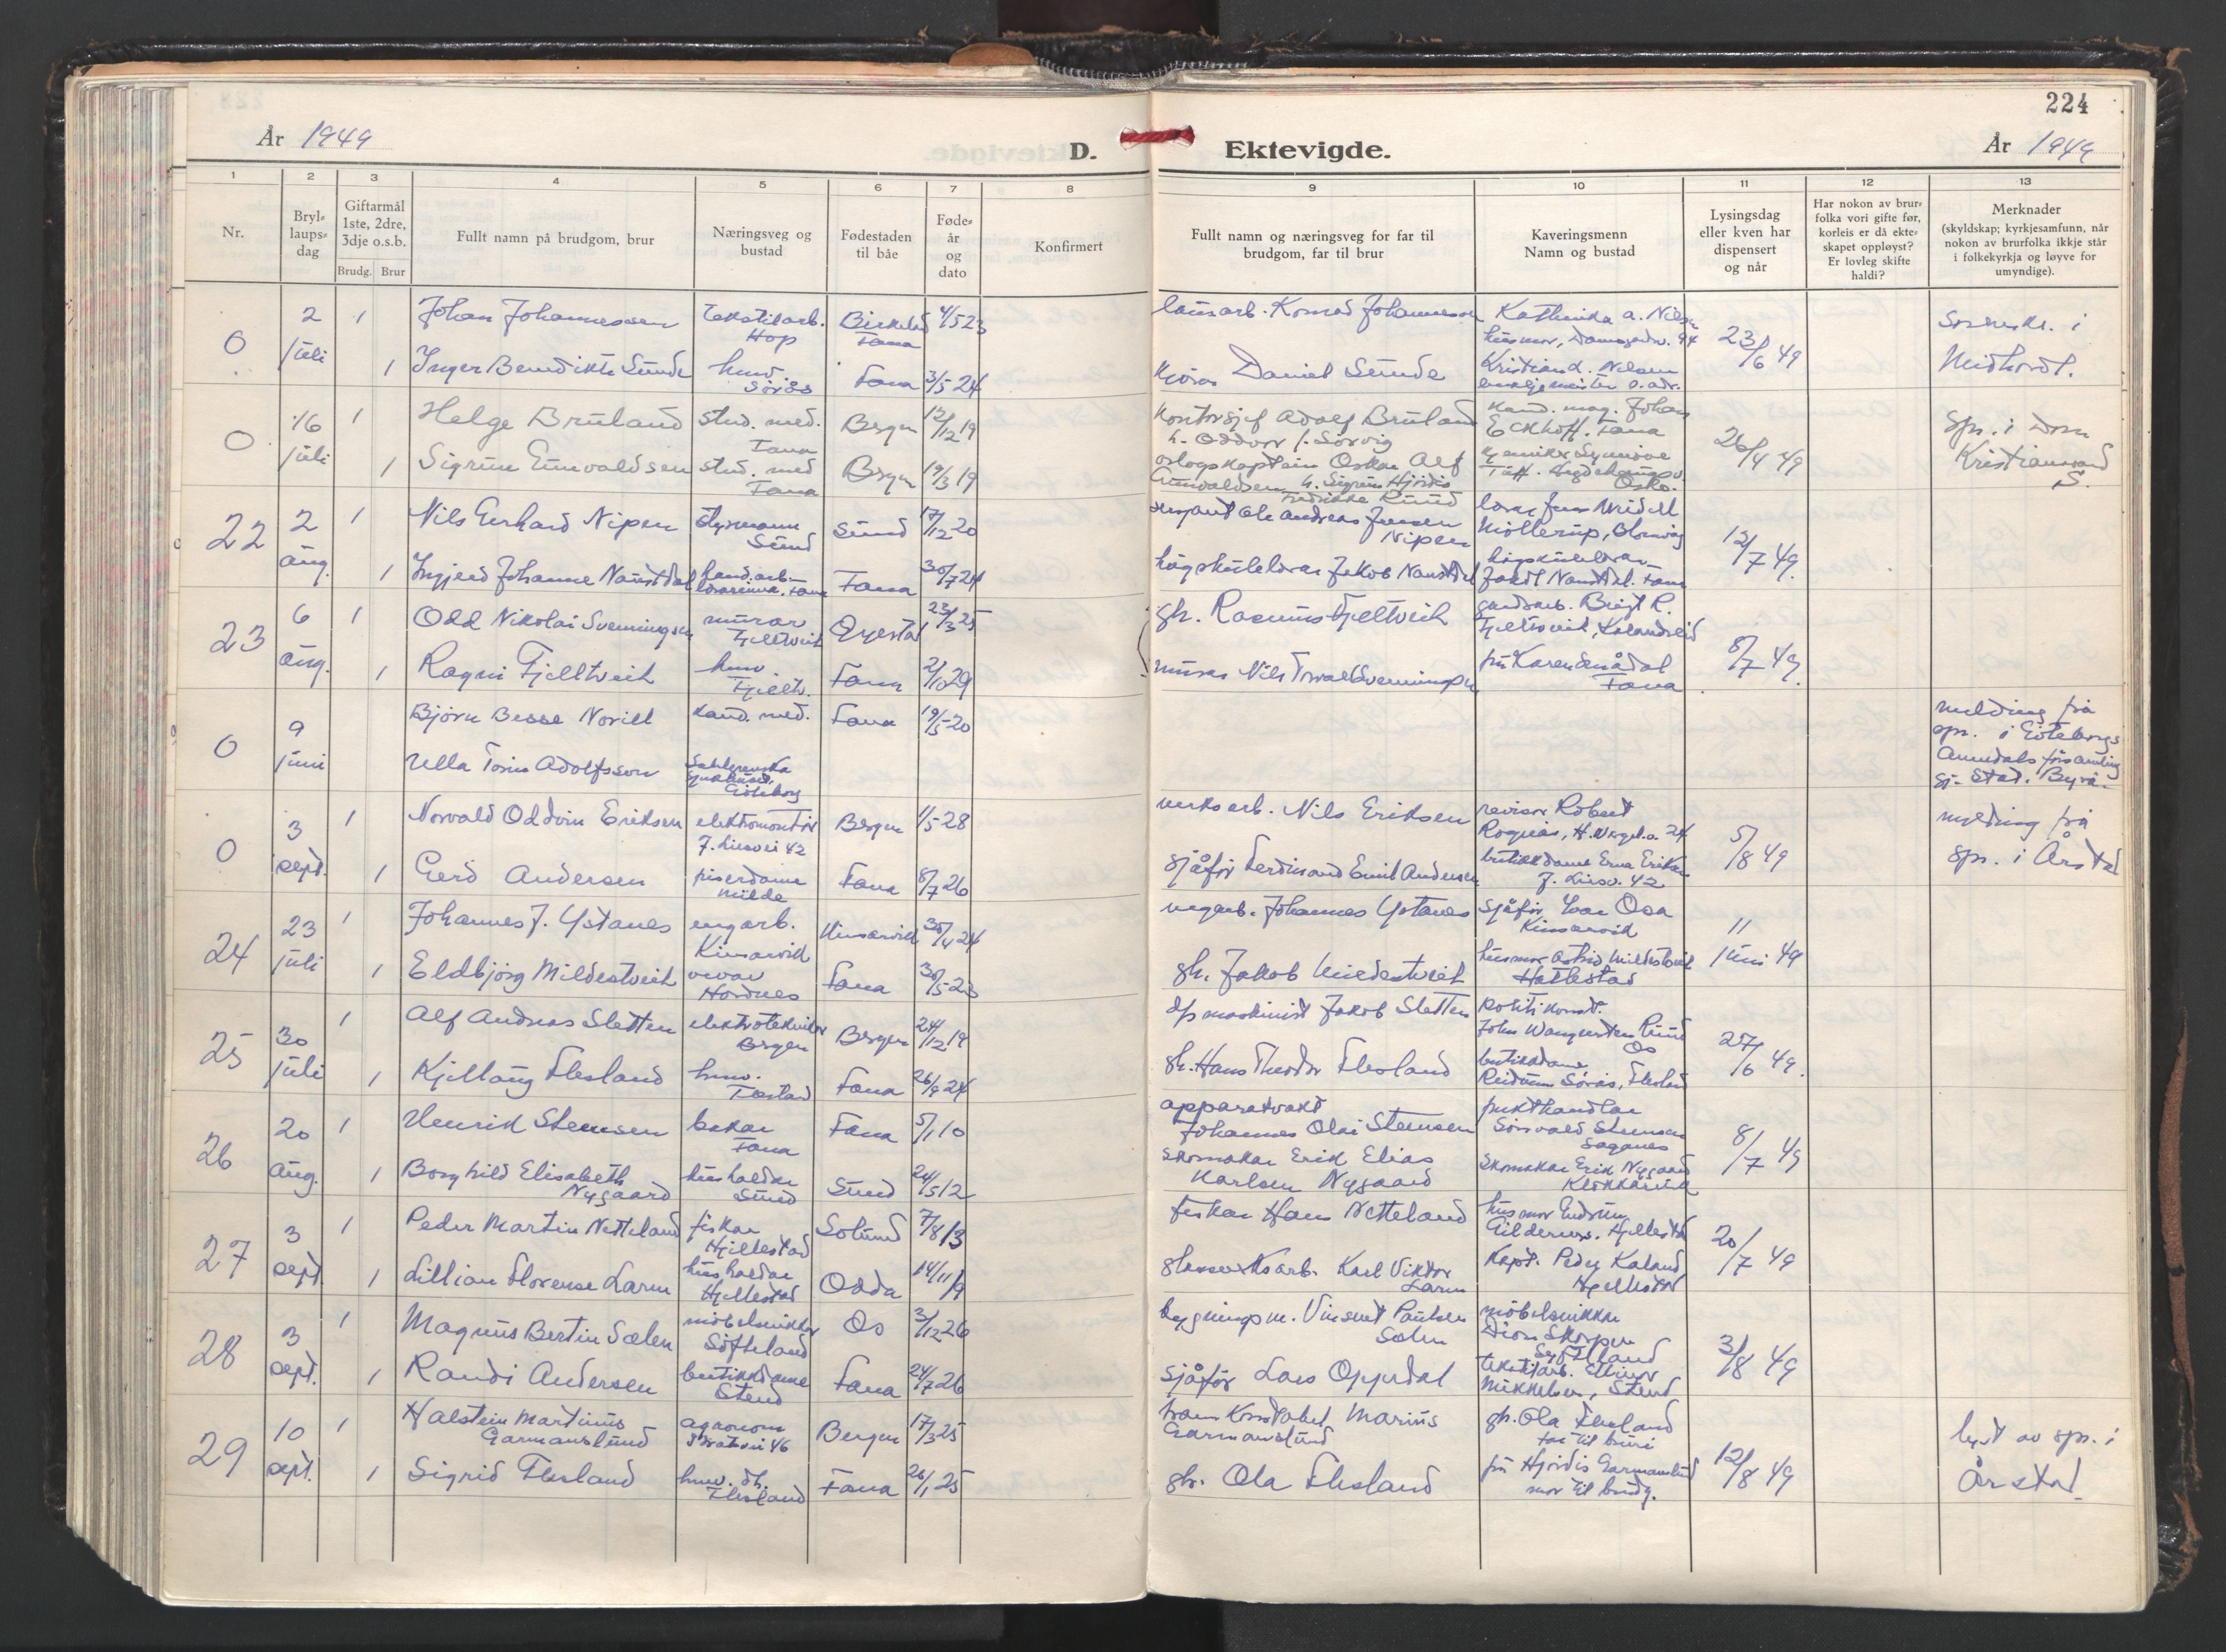 224
År 1949
D.
Ektevigde.
År 1949
1
2
3
4
5
6
7
8
9
10
11
12
13
Nr.
Bryl-
laups-
dag
Giftarmål
1ste, 2dre,
3dje o.s.b.
Brudg. Brur
Fullt namn på brudgom, brur
Næringsveg og
bustad
Fødestaden
til båe
Føde-
år
og
dato
Konfirmert
Fullt namn og næringsveg for far til
brudgom, far til brur
Kaveringsmenn
Namn og bustad
Lysingsdag
eller kven har
dispensert
og når
Har nokon av brur-
folka vori gifte før,
korleis er då ekte-
skapet oppløyst?
Er lovleg skifte
haldi?
Merknader
(skyldskap; kyrkjesamfunn, når
nokon av brurfolka ikkje står
i folkekyrkja og løyve for
umyndige).
0
2
juli
1
Johan Johannessen
tekstilarb.
Hop
Birkeland
Fana
4/5 23
Konrad Johannessen
Kathinka A. Nilsen
husmor, Damsgardsv. 94
23/6 49
i
Midhordl.
1
Inger Benedikte Sunde
husv.
Sørås
Fana
3/5 24
Daniel Sunde
Kristian L. Nilsen
s. adr.
0
16
juli
1
Helge Bruland
stud. med.
Fana
Bergen
12/12 19
kontorsjef Adolf Bruland
h. Oddvor f. Sørvig
kand. mag. Johan
Eckhoff. Fana
26/4 49
Spr. i Dom
Kristiansand
S.
1
Sigrun Einvaldsen
stud. med
Fana
Bergen
19/3 19
orlogskaptein Oskar Alf
Einvaldsen h. Sigrun Hjördis
Fredrikke Ruud
Synnöve
Oslo.
22
2
aug.
1
Nils Gerhard Nipen
styrmann
Sund
Sund
17/12 20
Ole Andreas Jensen
Nipen
Möllerup, Blomvåg
12/7 49.
1
Ingjerd Johanne Naustdal
hand.arb.-
lærarinna. Fana
Fana
30/7 24
högskulelærar Jakob Naustdal
högskulelærar
Jakob Naustdal. Fana
23
6
aug.
1
Odd Nikolai Svenningsen
murar
Fjelltveit
Øyestad
23/3 25
gh. Rasmus Fjelltveit
gardsarb. Birgit R.
Fjelltveit, Kalandseid
8/7 49.
1
Ragni Fjelltveit
husv.
Fjelltv.
Fana
2/10 29
murar Nils Torvald Svenningsen
fru Karen Smådal
Fana
0
9
juni
Björn Besse Norill
kand. med.
Fana
19/5 20
melding frå
spr. i Göteborgs
Annedals församling
gj. Stat. Byrå.
Ulla Torin Adolfsson
Sahlgrenska
Sjukhuset,
Göteborg
0
3
sept.
1
Norvald Oddvin Eriksen
elektromontör
J. Liesvei 42
Bergen
1/5 28
verksarb. Nils Eriksen
revisor Robert
H. Vergel. a. 24
5/8 49
melding frå
spr. i Årstad
1
Gerd Andersen
friserdame
Milde
Fana
8/7 26
sjåför Ferdinand Emil Andersen
butikkdame Erna Eriksen
J. Liesv. 42
24
23
juli
1
Johannes J. Ystanes
vegarb.
Kinsarvik
Kinsarvik
30/4 24
vegarb. Johannes Ystanes
sjåför Ivar Osa
Kinsarvik
11
juni 49
1
Eldbjörg Mildestveit
vevar
Hordnes
Fana
30/5 23
gh. Jakob Mildestveit
husmor Astrid Mildestveit
Hatlestad
25
30
juli
1
Alf Andreas Sletten
elektrotekniker
Bergen
Bergen
24/12 19
d/s maskinist Jakob Sletten
politikonst.
John Wangensten Ruud
Os
25/6 49.
1
Kjellaug Flesland
husv.
Fana
26/9 24
gh. Hans Theodor Flesland
butikkdame
Reidunn Sørås, Flesland
26
20
aug.
1
Henrik Steensen
bakar
Fana
Fana
5/1 10
apparatvakt
Johannes Olai Steensen
frukthandlar
Steensen
8/7 49
1
Borghild Elisabeth
Nygaard
hushaldar
Sund
Sund
24/5 12
skomakar Erik Elias
Karlsen Nygaard
skomakar Erik Nygaard
27
3
sept.
1
Peder Martin Netteland
fiskar
Hjellestad
Solund
7/8 13
fiskar Hans Netteland
husmor Gudrun
Hjellestad
20/7 49
1
Lillian Florense Larm
hushaldar
Hjellestad
Odda
14/11 19
Karl Viktor
Larm
Kapt. Peder Kaland
Hjellestad
28
3
sept.
1
Magnus Bertin Sælen
möbelsnikkar
Söfteland
Os
3/12 26
bygningsm. Vinsent Paulsen
Sælen
möbelsnikkar
Skorpen
Söfteland
3/8 49
1
Randi Andersen
butikkdame
Stend
Fana
24/7 26
sjåför Lars Oppedal
tekstilarb. Ellinor
Mikkelsen, Stend
29
10
sept.
1
Halstein Martinus
Garmanslund
agronom
46
Bergen
17/3 25
Konstabel Marius
Garmanslund
gh. Ola Flesland
far til bruri
12/8 49
lyst av spr. i
Årstad.
1
Sigrid Flesland
husv. dh.
Flesland
Fana
26/1 25
gh. Ola Flesland
fru Hjördis Garmanslund
mor til brudg.